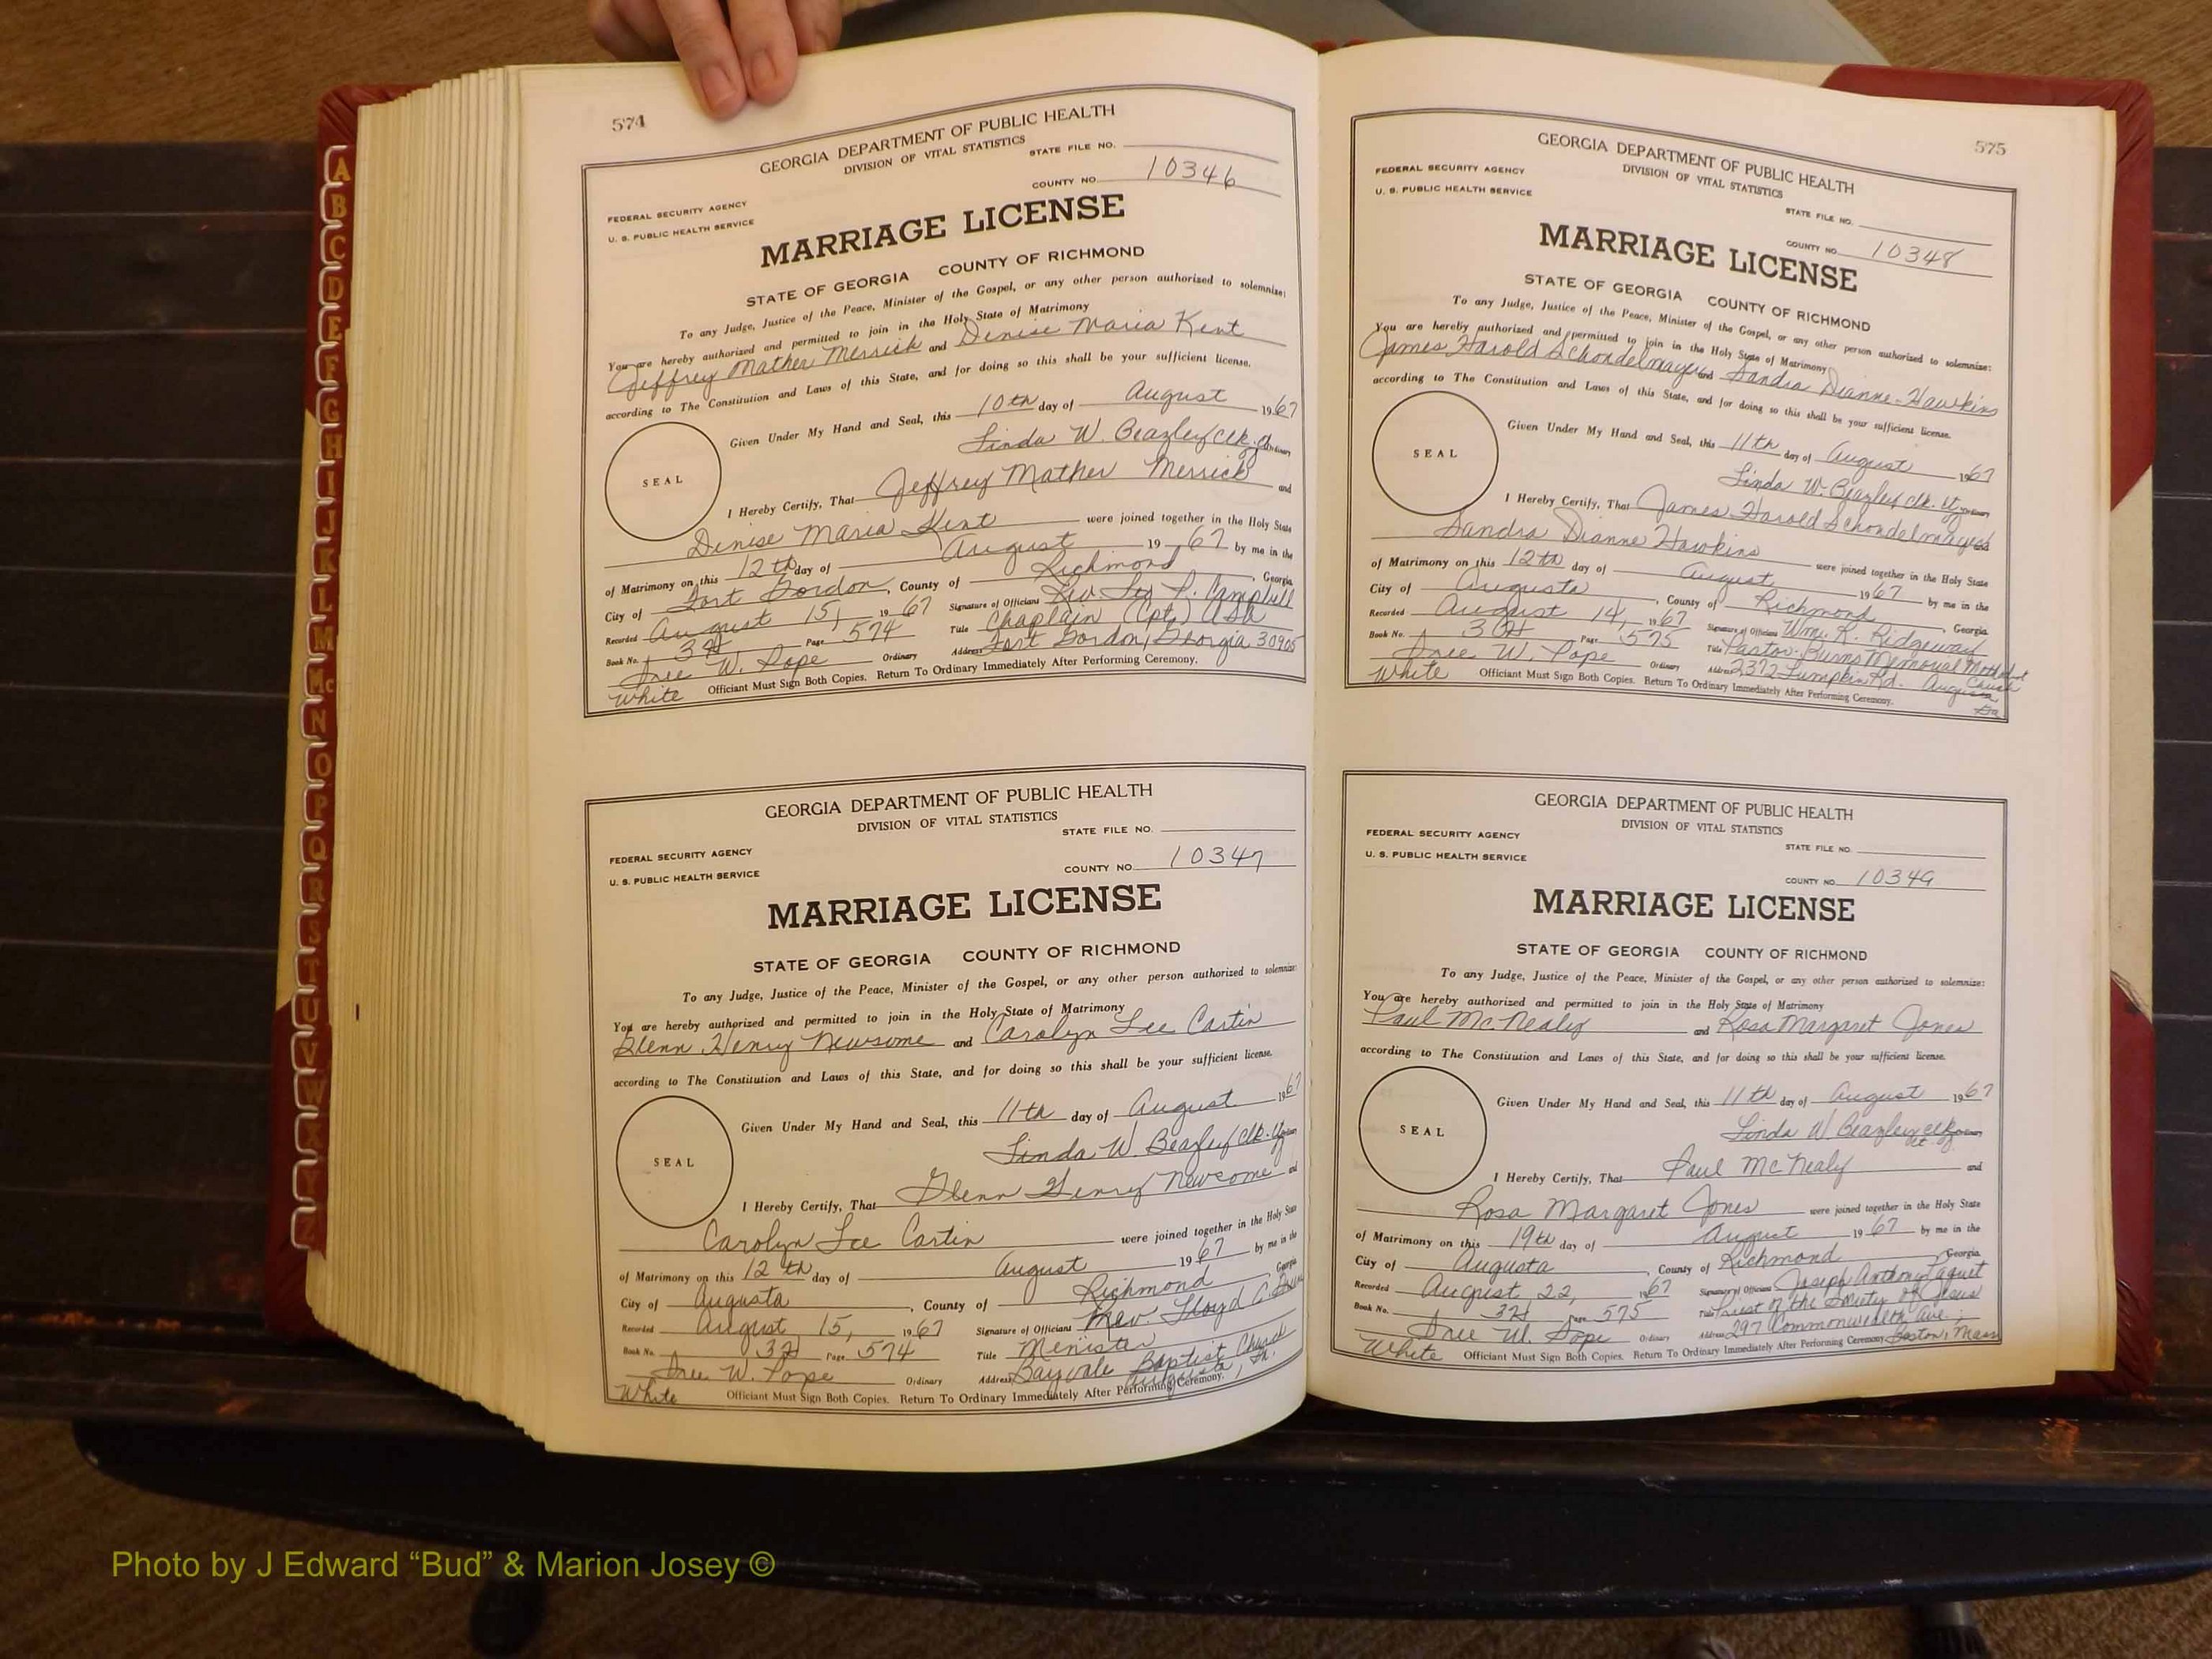 A
B
C
D
E
F
G
H
I
J
K
L
M
Mc
N
O
P
Q
R
S
T
U
V
W
X
Y
Z
574
GEORGIA DEPARTMENT OF PUBLIC HEALTH
DIVISION OF VITAL STATISTICS
STATE FILE NO.
COUNTY NO. 10346
FEDERAL SECURITY AGENCY
U. S. PUBLIC HEALTH SERVICE
MARRIAGE LICENSE
STATE OF GEORGIA COUNTY OF RICHMOND
To any Judge, Justice of the Peace, Minister of the Gospel, or any other person authorized to solemnize:
You are hereby authorized and permitted to join in the Holy State of Matrimony
Jeffrey Mather Merrick and Denise Maria Kent
according to The Constitution and Laws of this State, and for doing so this shall be your sufficient license.
Given Under My Hand and Seal, this 10th day of August 1967
Linda W. Beazley Clk. Ordinary
SEAL
I Hereby Certify, That Jeffrey Mather Merrick and
Denise Maria Kent were joined together in the Holy State
of Matrimony on this 12th day of August 19 67 by me in the
City of Fort Gordon, County of Richmond, Georgia
Recorded August 15, 1967 Signature of Officiant Rev. P. Campbell
Book No. Page 574 Title Chaplain (Cpt.) USA
W. Pope Ordinary Address Fort Gordon, Georgia 30905
White Officiant Must Sign Both Copies. Return To Ordinary Immediately After Performing Ceremony.
GEORGIA DEPARTMENT OF PUBLIC HEALTH
DIVISION OF VITAL STATISTICS
STATE FILE NO.
COUNTY NO. 10347
FEDERAL SECURITY AGENCY
U. S. PUBLIC HEALTH SERVICE
MARRIAGE LICENSE
STATE OF GEORGIA COUNTY OF RICHMOND
To any Judge, Justice of the Peace, Minister of the Gospel, or any other person authorized to solemnize:
You are hereby authorized and permitted to join in the Holy State of Matrimony
Glenn Henry Newsome and Carolyn Lee Cartin
according to The Constitution and Laws of this State, and for doing so this shall be your sufficient license.
Given Under My Hand and Seal, this 11th day of August 1967
Linda W. Beazley Clk. Ordinary
SEAL
I Hereby Certify, That Glenn Henry Newsome and
Carolyn Lee Cartin were joined together in the Holy State
of Matrimony on this 12th day of August 1967 by me in the
City of Augusta, County of Richmond Georgia
Recorded August 15, 1967 Signature of Officiant Rev. Lloyd
Book No. Page 574 Title Minister
W. Pope Ordinary Address Bayvale Baptist Church Augusta, Ga.
White Officiant Must Sign Both Copies. Return To Ordinary Immediately After Performing Ceremony.
575
GEORGIA DEPARTMENT OF PUBLIC HEALTH
DIVISION OF VITAL STATISTICS
FEDERAL SECURITY AGENCY
U. S. PUBLIC HEALTH SERVICE
STATE FILE NO.
COUNTY NO. 10348
MARRIAGE LICENSE
STATE OF GEORGIA COUNTY OF RICHMOND
To any Judge, Justice of the Peace, Minister of the Gospel, or any other person authorized to solemnize:
You are hereby authorized and permitted to join in the Holy State of Matrimony
James Harold Schondelmayer and Sandra Dianne Hawkins
according to The Constitution and Laws of this State, and for doing so this shall be your sufficient license.
Given Under My Hand and Seal, this 11th day of August 1967
Linda W. Beazley Clk. Ordinary
SEAL
I Hereby Certify, That James Harold Schondelmayer and
Sandra Dianne Hawkins were joined together in the Holy State
of Matrimony on this 12th day of August 1967 by me in the
City of Augusta, County of Richmond, Georgia
Recorded August 14, 1967 Signature of Officiant Wm. R. Ridgeway
Book No. Page 575 Title Pastor-Burns Memorial Methodist Church
W. Pope Ordinary Address 2372 Lumpkin Rd. Augusta Ga
White Officiant Must Sign Both Copies. Return To Ordinary Immediately After Performing Ceremony.
GEORGIA DEPARTMENT OF PUBLIC HEALTH
DIVISION OF VITAL STATISTICS
FEDERAL SECURITY AGENCY
U. S. PUBLIC HEALTH SERVICE
STATE FILE NO.
COUNTY NO. 10349
MARRIAGE LICENSE
STATE OF GEORGIA COUNTY OF RICHMOND
To any Judge, Justice of the Peace, Minister of the Gospel, or any other person authorized to solemnize:
You are hereby authorized and permitted to join in the Holy State of Matrimony
Paul McNealy and Rosa Margaret Jones
according to The Constitution and Laws of this State, and for doing so this shall be your sufficient license.
Given Under My Hand and Seal, this 11th day of August 1967
Linda W. Beazley Clk. Ordinary
SEAL
I Hereby Certify, That Paul McNealy and
Rosa Margaret Jones were joined together in the Holy State
of Matrimony on this 19th day of August 1967 by me in the
City of Augusta, County of Richmond, Georgia
Recorded August 22, 1967 Signature of Officiant Joseph Anthony
Book No. Page 575 Title Priest of the Society of Jesus
W. Pope Ordinary Address 297 Commonwealth Ave. Boston, Mass
White Officiant Must Sign Both Copies. Return To Ordinary Immediately After Performing Ceremony.
Photo by J Edward “Bud” & Marion Josey ©